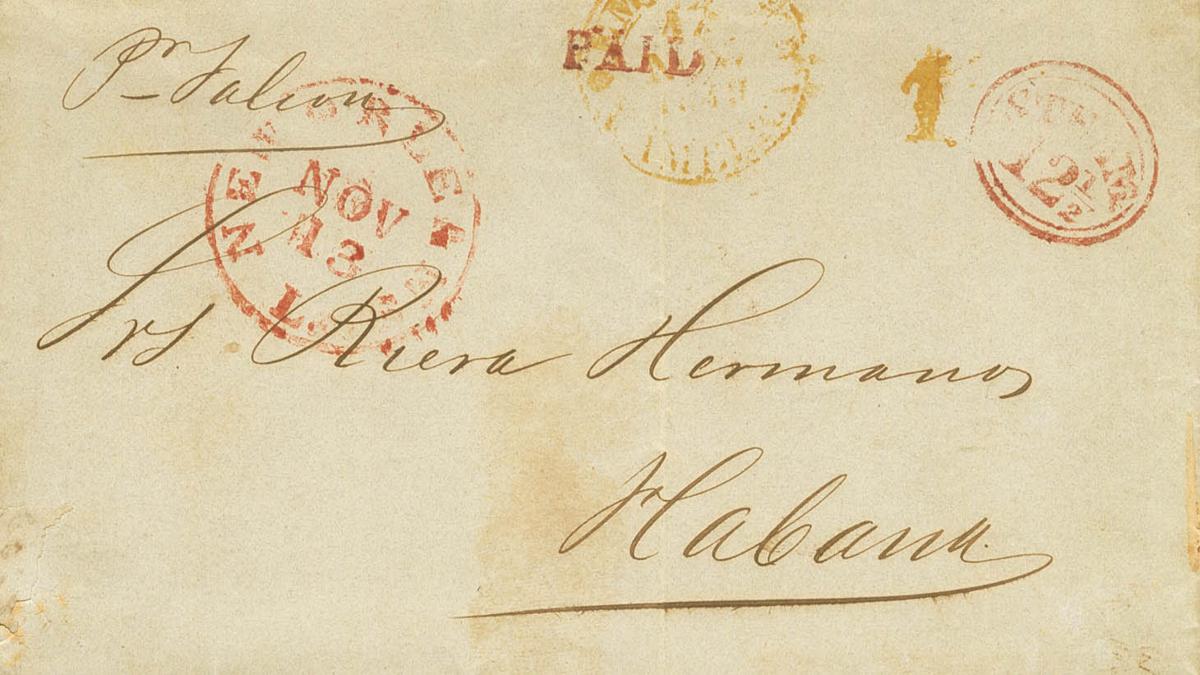 Pr Falcon
PAID
1
STEAM
12½
NEW ORLEANS
NOV
13
L
Srs Riera Hermanos
Habana